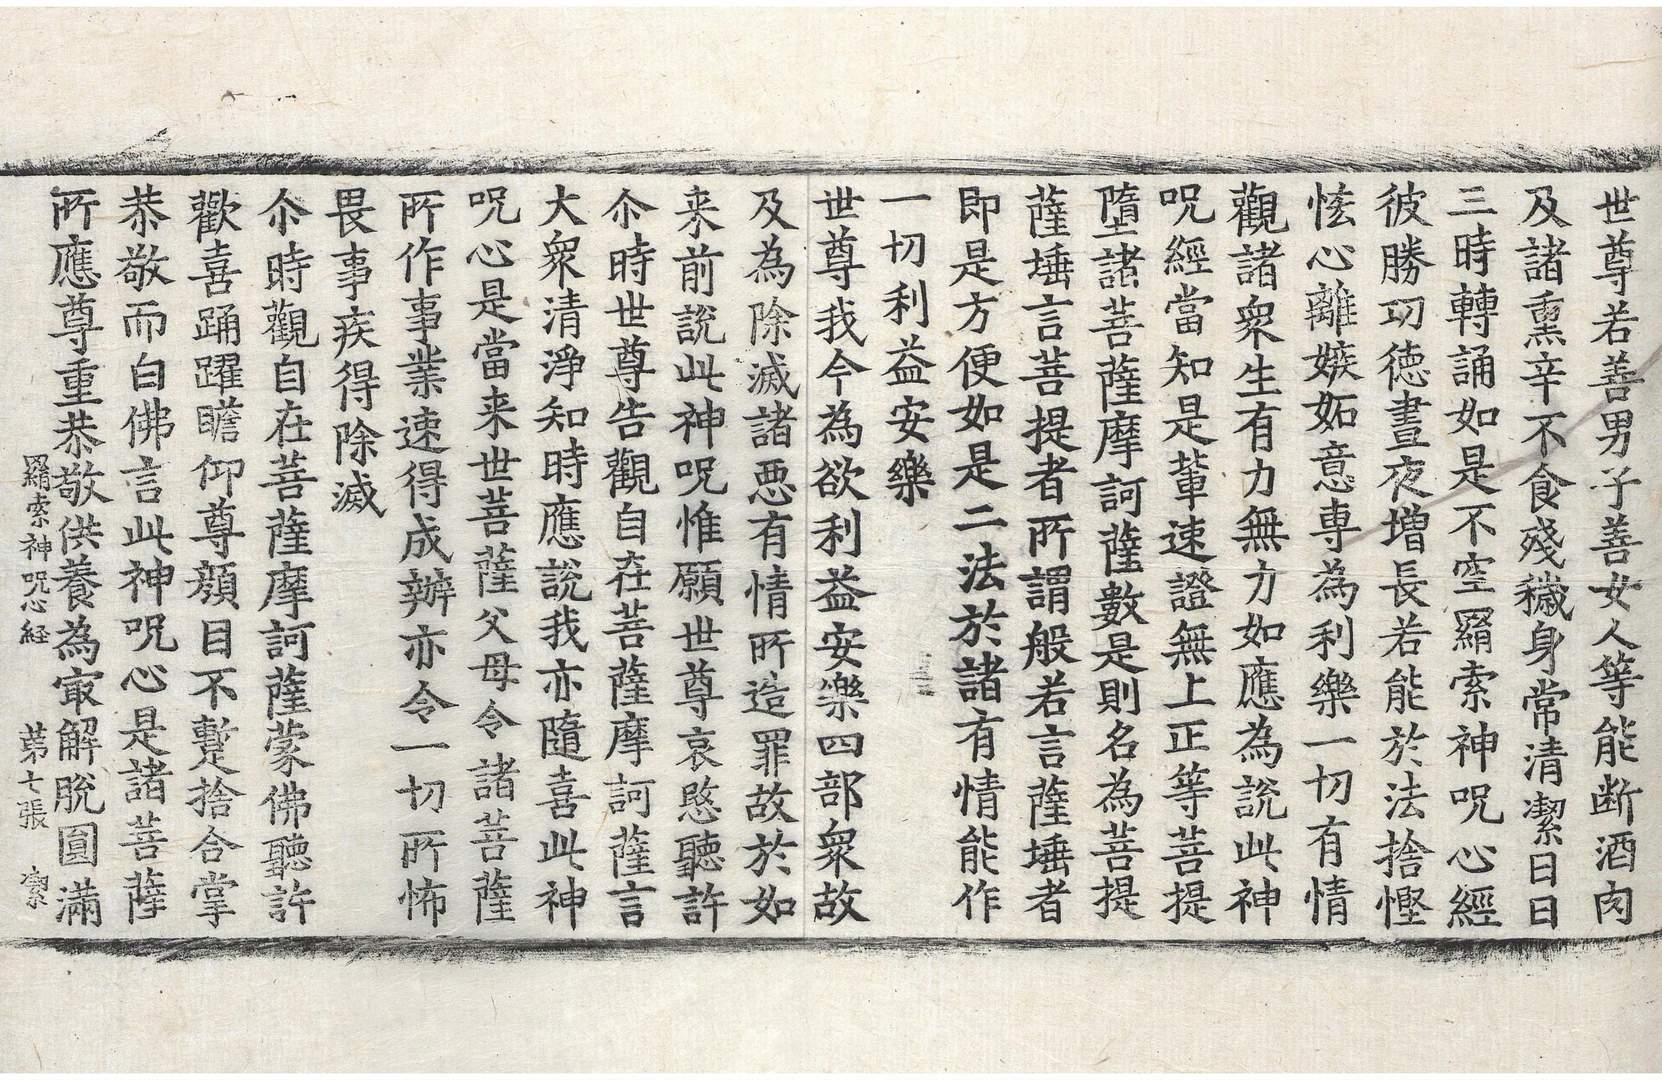 世尊若善男子善女人等能断酒肉
及諸熏辛不食殘穢身常清潔日日
三時轉誦如是不空羂索神呪心經
彼勝功德晝夜增長若能於法捨慳
恡心離嫉妬意專為利樂一切有情
觀諸衆生有力無力如應為説此神
呪經當知是輩速證無上正等菩提
墮諸菩薩摩訶薩數是則名為菩提
薩埵言菩提者所謂般若言薩埵者
即是方便如是二法於諸有情能作
一切利益安樂
世尊我今為欲利益安樂四部衆故
及為除滅諸惡有情所造罪故於如
来前說此神呪惟願世尊哀愍聽許
尒時世尊告觀自在菩薩摩訶薩言
大衆清淨知時應説我亦隨喜此神
呪心是當来世菩薩父母令諸菩薩
所作事業速得成辦亦令一切所怖
畏事疾得除滅
尒時觀自在菩薩摩訶薩蒙佛聽許
歡喜踊躍瞻仰尊顏目不蹔捨合掌
恭敬而白佛言此神呪心是諸菩薩
所應尊重恭敬供養為㝡解脫圓滿
羂索神呪心経 第七張 潔